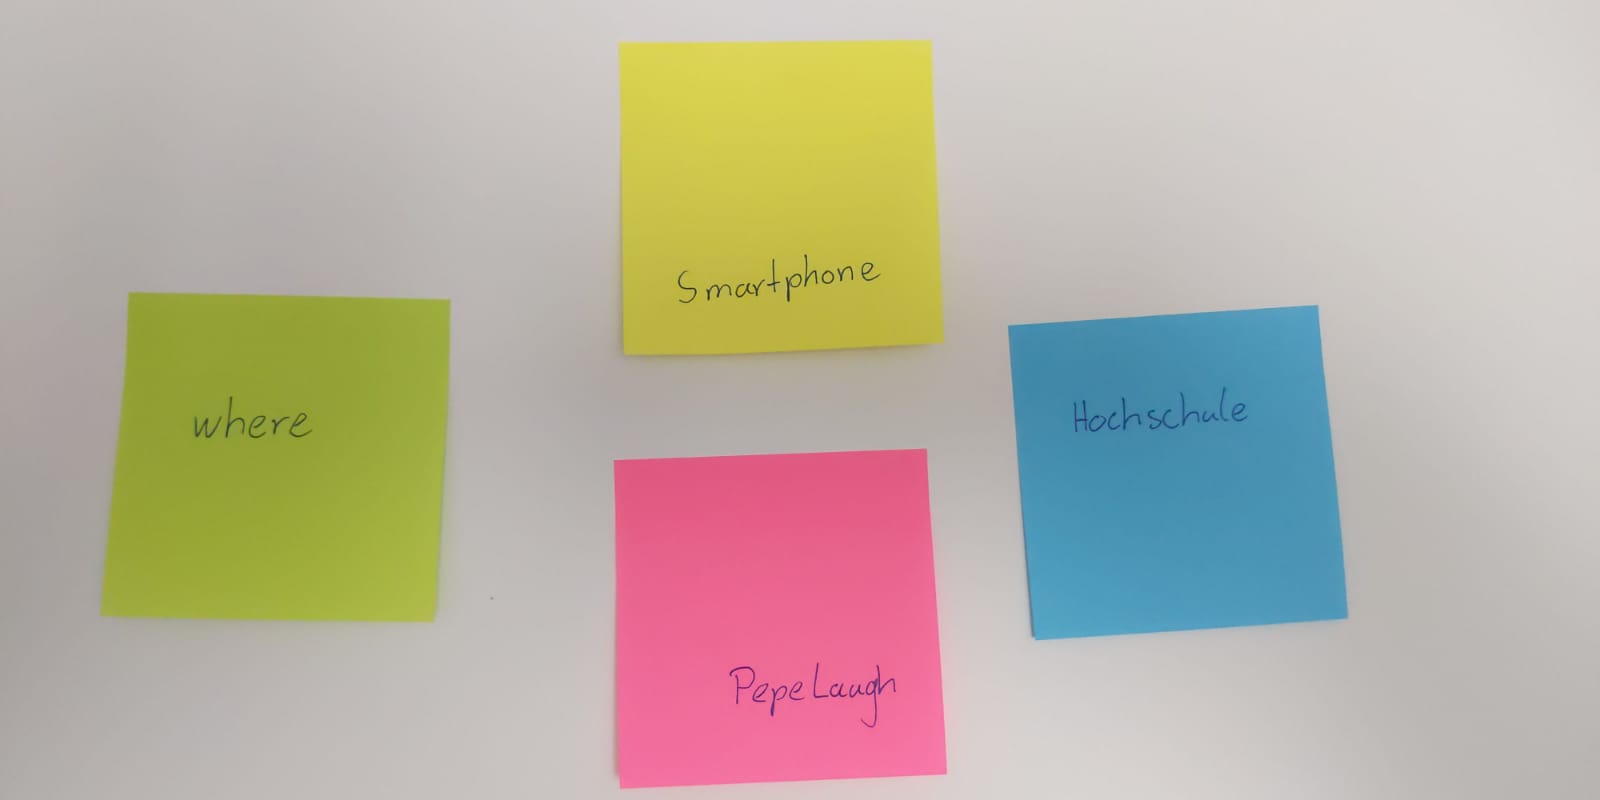 Smartphone
where
Hochschule
PepeLaugh